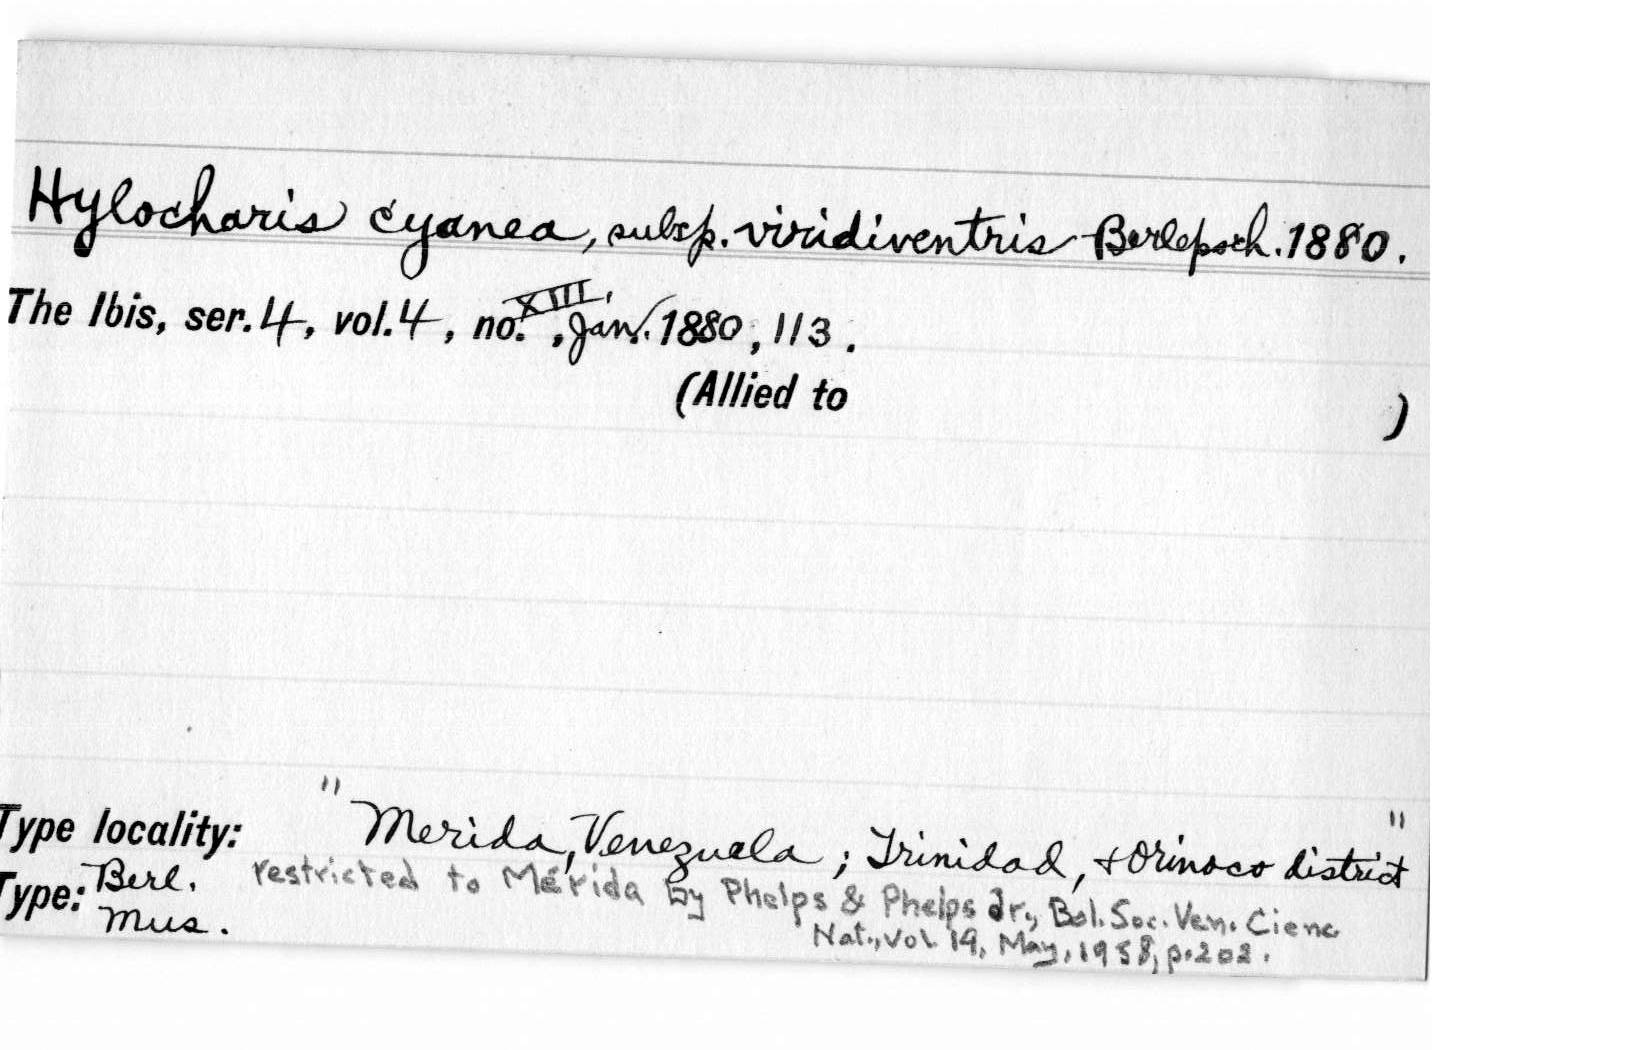 Hylocharis cyanea, subsp. viridiventris Berlepsch. 1880.
The Ibis, ser. 4, vol. 4, no. XIII, Jan. 1880, 113.
(Allied to )
Type locality: "Merida, Venezuela; Trinidad, & Orinoco district"
Type: Berl. Mus.
restricted to Mérida by Phelps & Phelps Jr., Bol. Soc. Ven. Cienc
Nat., vol. 19, May, 1958, p. 202.